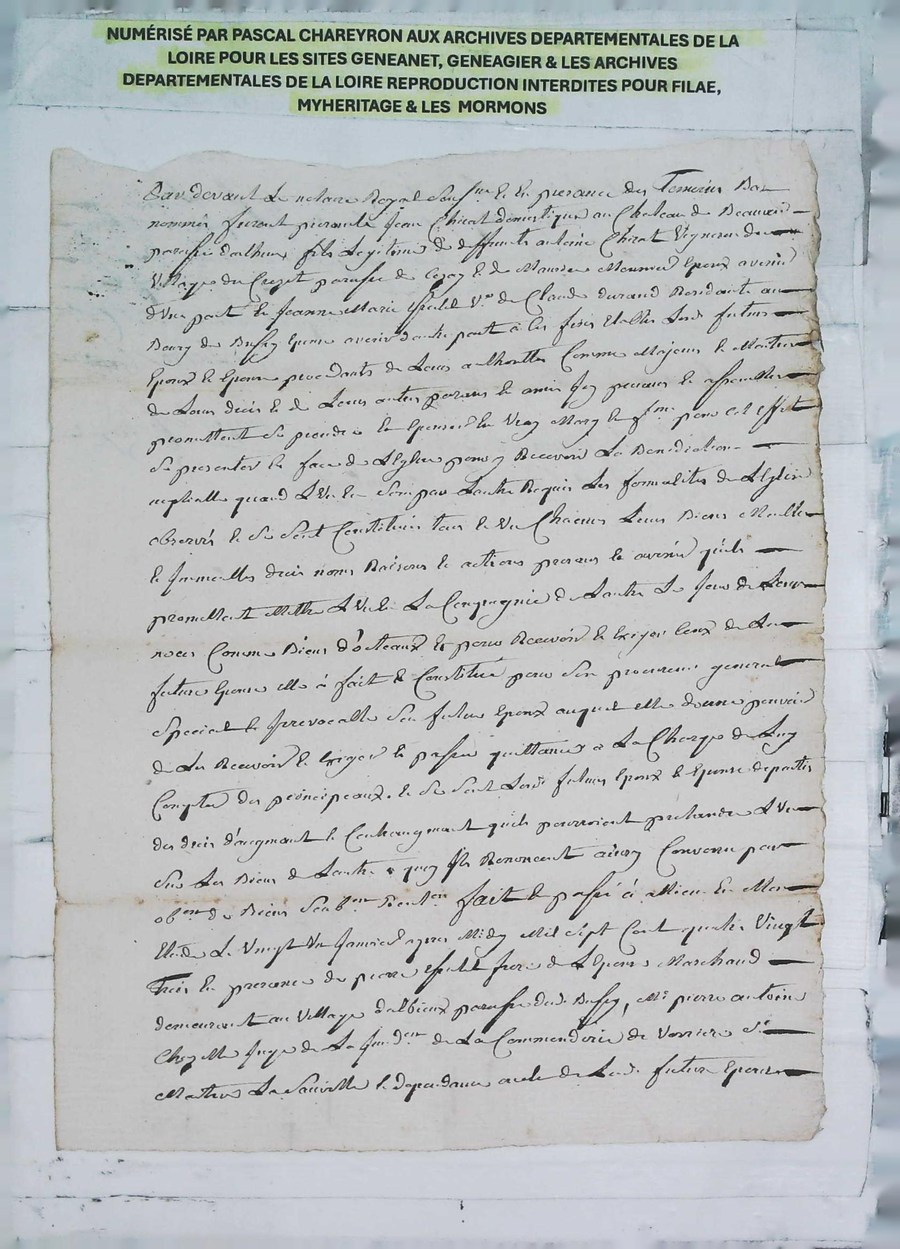 NUMÉRISÉ PAR PASCAL CHAREYRON AUX ARCHIVES DEPARTEMENTALES DE LA
LOIRE POUR LES SITES GENEANET, GENEAGIER & LES ARCHIVES
DEPARTEMENTALES DE LA LOIRE REPRODUCTION INTERDITES POUR FILAE,
MYHERITAGE & LES MORMONS
Par devant Le notaire Royal Sous.né & En presance des Temoins Bas
nommés furent presants Jean Chirat domestique au Chateau de Beauvoir
paroisse d'arthun fils Legitime de deffunts antoine Chirat Vigneron du
Village du Crozet paroisse de Cezay & de Meunier Epoux avenir
d'Une part & Jeanne Marie Ve de Claude durand Residante au
Bourg de Bussy Epouse avenir d'autre part à Les fins Lesds futurs
Epoux & Epouse procedants de Leurs authorittés Comme Majeurs & Maitres
de Leurs droits & de Leurs autres parans & amis Icy presans &
promettent se prendre & Epouser En Vray Mary & fme pour cet Effet
Se presenter En face de L'Eglise pour y Recevoir La Benediction
nuptialle quand L'Un En Sera par L'autre Requis Les formalités de L'Eglise
observés & Se Sont Constitués tous & Un Chacuns Leurs Biens Meubles
& Immeubles droits noms Raisons & actions presens & avenir quils
promettent Mettre L'Un En La Compagnie de L'autre Le Jour de Leurs
noces Comme Biens d'oteaux & pour Recevoir & Exiger Ceux de La
future Epouse elle à fait & Constitué pour Son procureur general
Special & Irrevocable Son futur Epoux auquel elle donne pouvoir
de Les Recevoir & Exiger En passer quittances à La Charge de Luy
Compter des principeaux. & Se Sont Lesds futurs Epoux & Epouse departis
des droits d'augmant & Contraugmant quils pourroient pretandre L'Un
Sur Les Biens de L'autre à quoy Ils Renoncent ainsy Convenu par
obon de Biens fait & passé à allieu En Mon
Etude Le Vingt Un Janvier apres Midy Mil Sept Cent quatre Vingt
Trois En presance de pierre frere de L'Epouse Marchand
demeurant au Village d'albieux paroisse dud. Bussy, Me pierre antoine
Juge de La Juridon de La Commanderie de Verriere St
La Sauvetté & dependance de Lade future Epouse